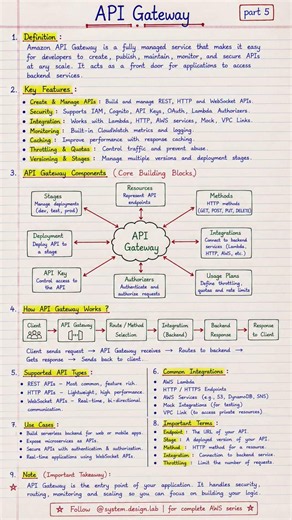 API Gateway
part 5
1. Definition :
Amazon API Gateway is a fully managed service that makes it easy
for developers to create, publish, maintain, monitor, and secure APIs
at any scale. It acts as a front door for applications to access
backend services.
2. Key Features :
• Create & Manage APIs : Build and manage REST, HTTP and WebSocket APIs.
• Security : Supports IAM, Cognito, API Keys, OAuth, Lambda Authorizers.
• Integration : Works with Lambda, HTTP, AWS services, Mock, VPC Links.
• Monitoring : Built-in CloudWatch metrics and logging.
• Caching : Improve performance with response caching.
• Throttling & Quotas : Control traffic and prevent abuse.
• Versioning & Stages : Manage multiple versions and deployment stages.
3. API Gateway Components (Core Building Blocks)
Stages
Manage deployments
(dev, test, prod)
Resources
Represent API
endpoints
Methods
HTTP methods
(GET, POST, PUT, DELETE)
Deployment
Deploy API to
a stage
API
Gateway
Integrations
Connect to backend
services (Lambda,
HTTP, AWS, etc.)
API Key
Control access to
the API
Authorizers
Authenticate and
authorize requests
Usage Plans
Define throttling,
quotas and rate limits
4. How API Gateway Works ?
Client
API
Gateway
Route / Method
Selection
Integration
(Backend)
Backend
Response
Response
to Client
Client sends request → API Gateway receives → Routes to backend →
Gets response → Sends back to client.
5. Supported API Types :
• REST APIs - Most common, feature rich.
• HTTP APIs - Lightweight, high performance.
• WebSocket APIs - Real-time, bi-directional
communication.
6. Common Integrations :
• AWS Lambda
• HTTP / HTTPS Endpoints
• AWS Services (e.g., S3, DynamoDB, SNS)
• Mock Integrations (for testing)
• VPC Link (to access private resources)
7. Use Cases :
• Build serverless backend for web or mobile apps.
• Expose microservices as APIs.
• Secure APIs with authentication & authorization.
• Real-time applications using WebSocket APIs.
8. Important Terms :
• Endpoint : The URL of your API.
• Stage : A deployed version of your API.
• Method : HTTP method for a resource.
• Integration : Connection to backend service.
• Throttling : Limit the number of requests.
9. Note (Important Takeaway) :
API Gateway is the entry point of your application. It handles security,
routing, monitoring and scaling so you can focus on building your logic.
Follow @system.design.lab for complete AWS series